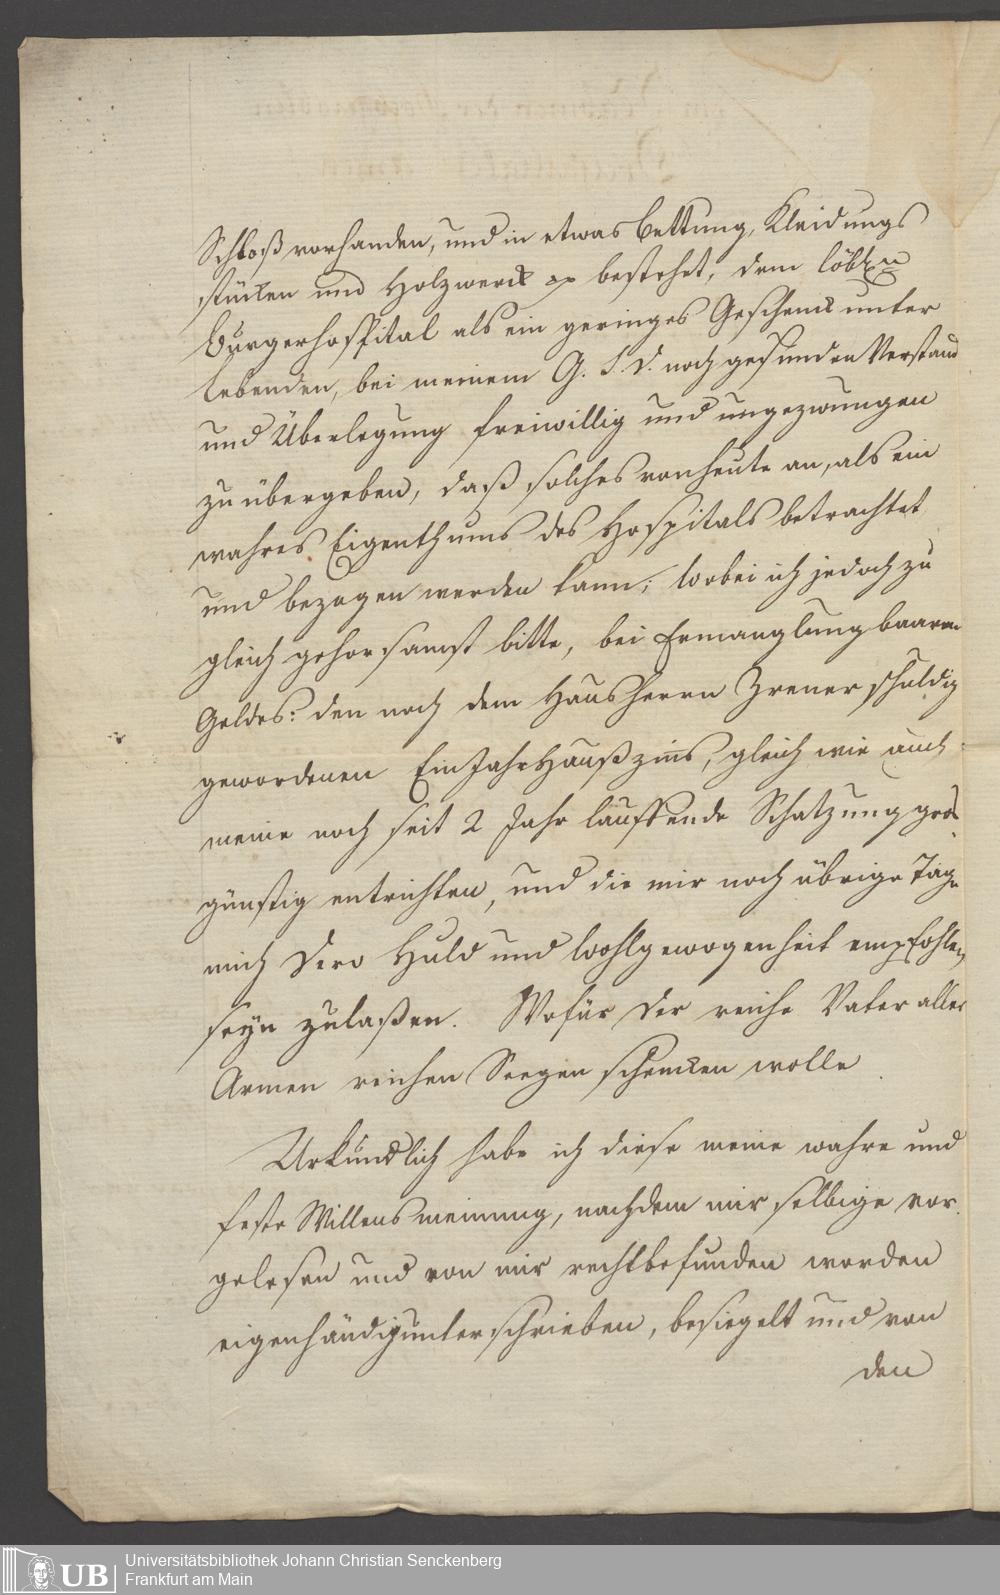 Schloß vorhanden, und in etwas Bettung, Kleidungs
stücken und Holzwerck pp bestehet, dem löbl.
Burgerhospital als ein geringes Geschenk unter
lebenden, bei meinem G. S. D. noch gesunden Verstand
und Überlegung freiwillig und ungezwungen
zu übergeben, daß solches von heute an, als ein
wahres Eigenthums des Hospitals betrachtet
und bezogen werden kann; Wobei ich jedoch zu
gleich gehorsamst bitte, bei Ermanglung baaren
Geldes: den noch dem Hausherrn Zrener schuldig
gewordenen Ein Jahr Haußzins, gleich wie auch
meine noch seit 2 Jahr lauffende Schatzung gros
günstig entrichten, und die mir noch übrige Tage
mich Dero Huld und Wohlgewogenheit empfohlen
seyn zulaßen. Wofür der reiche Vater aller
Armen reichen Seegen schencken wolle
Urkundlich habe ich diese meine wahre und
feste Willensmeinung, nachdem mir selbige vor
gelesen und von mir recht befunden worden
eigenhändig unterschrieben, besiegelt und von
den
UB
Universitätsbibliothek Johann Christian Senckenberg
Frankfurt am Main